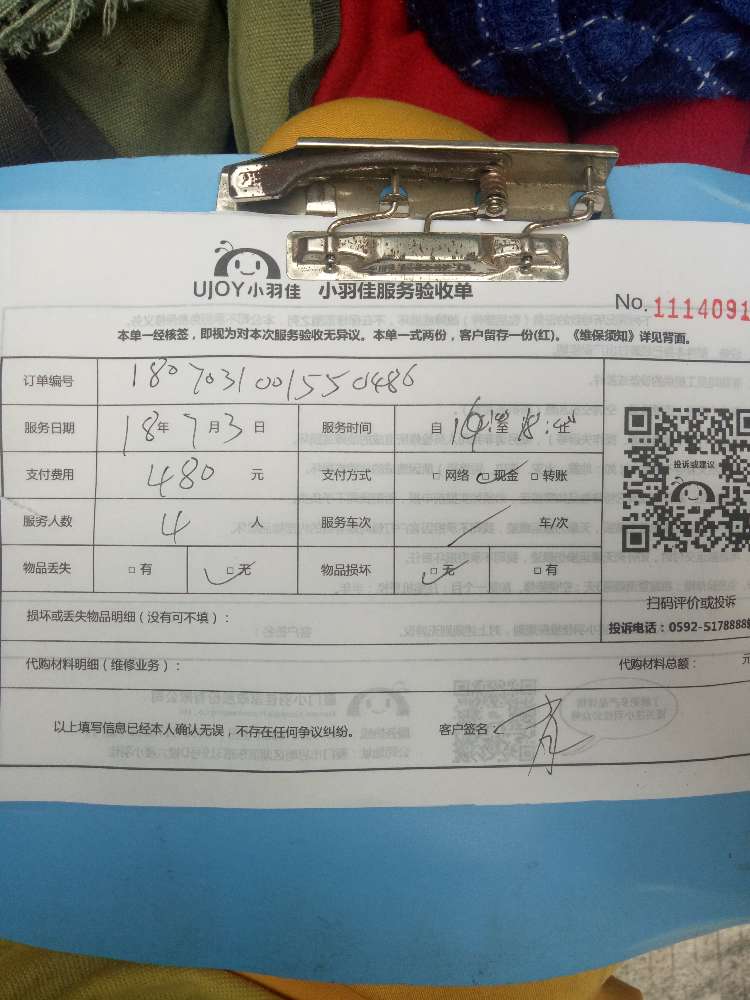 UJOY小羽佳 小羽佳服务验收单
No. 1114091
本单一经核签，即视为对本次服务验收无异议。本单一式两份，客户留存一份(红)。《维保须知》详见背面。
订单编号 180703100155 0486
服务日期 18年 7月3日 服务时间 自 至
支付费用 480 元 支付方式 □网络 □现金 □转账
服务人数 4 人 服务车次 / 车/次
物品丢失 □有 □无 物品损坏 □无 □有
投诉或建议
扫码评价或投诉
损坏或丢失物品明细（没有可不填）：
投诉电话：0592-5178888
代购材料明细（维修业务）： 代购材料总额： 元
以上填写信息已经本人确认无误，不存在任何争议纠纷。 客户签名：